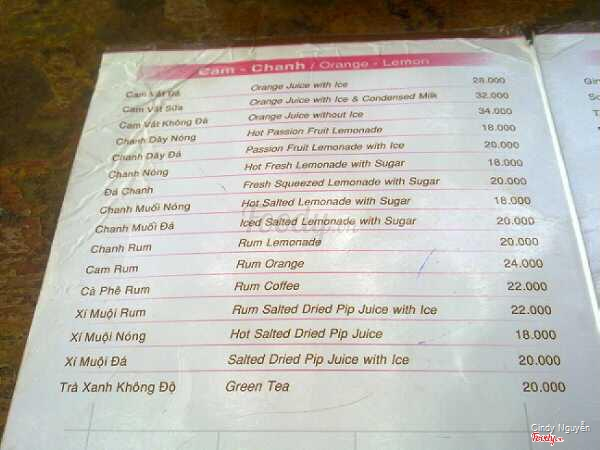 Cam - Chanh / Orange - Lemon
Cam Vắt Đá Orange Juice with Ice 28.000
Cam Vắt Sữa Orange Juice with Ice & Condensed Milk 32.000
Cam Vắt Không Đá Orange Juice without Ice 34.000
Chanh Dây Nóng Hot Passion Fruit Lemonade 18.000
Chanh Dây Đá Passion Fruit Lemonade with Ice 20.000
Chanh Nóng Hot Fresh Lemonade with Sugar 18.000
Đá Chanh Fresh Squeezed Lemonade with Sugar 20.000
Chanh Muối Nóng Hot Salted Lemonade with Sugar 18.000
Chanh Muối Đá Iced Salted Lemonade with Sugar 20.000
Chanh Rum Rum Lemonade 20.000
Cam Rum Rum Orange 24.000
Cà Phê Rum Rum Coffee 22.000
Xí Muội Rum Rum Salted Dried Pip Juice with Ice 22.000
Xí Muội Nóng Hot Salted Dried Pip Juice 18.000
Xí Muội Đá Salted Dried Pip Juice with Ice 20.000
Trà Xanh Không Độ Green Tea 20.000
Foody.vn
Cindy Nguyễn
Foody.vn